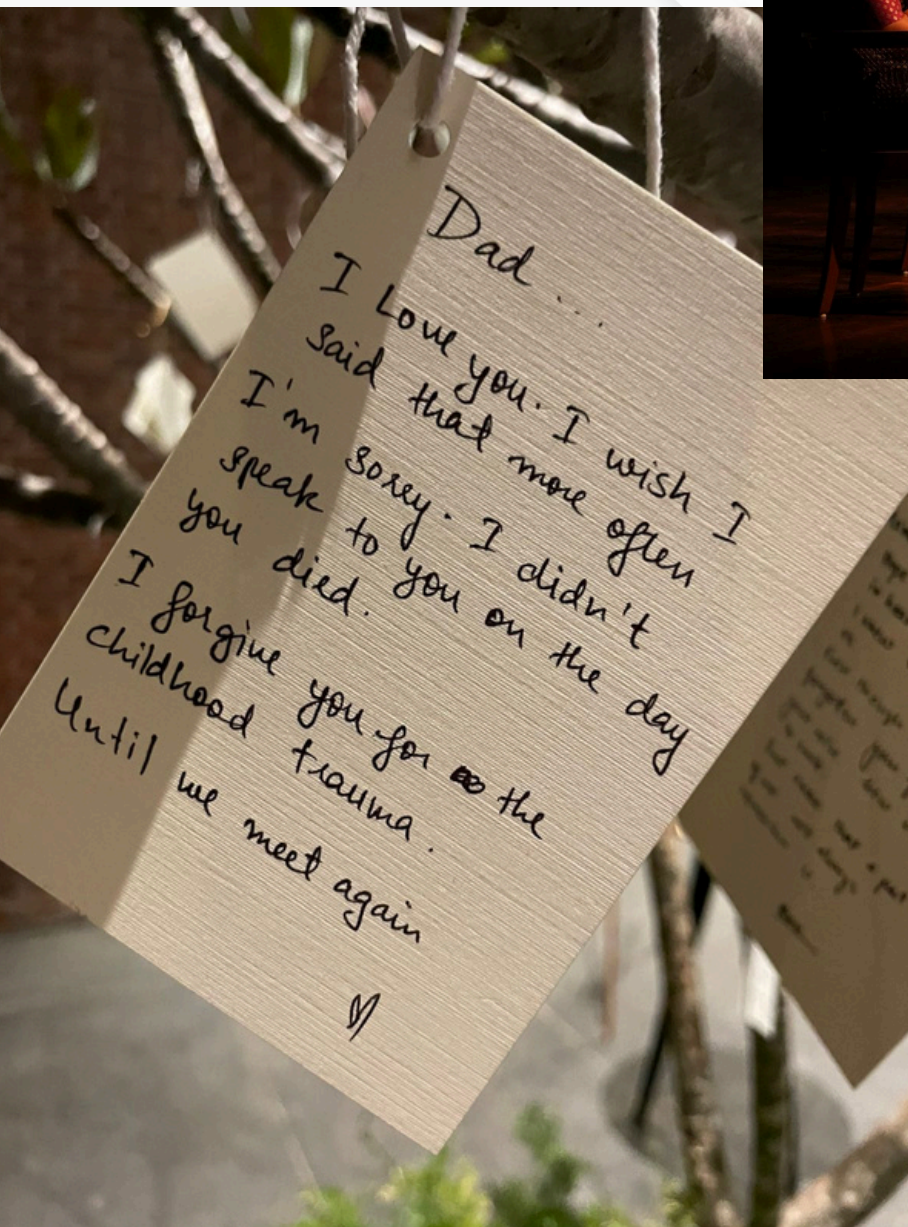 Dad ...
I Love you. I wish I
said that more often
I'm sorry. I didn't
speak to you on the day
you died.
I forgive you for the
childhood trauma.
Until we meet again